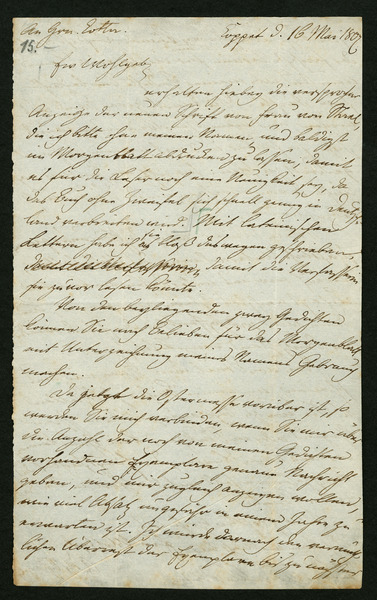 An Hrn. Cotta.
Coppet d. 16 Mai 1807
15.
Ew Wohlgeb.
erhalten hiebey die versprochene
Anzeige der neuen Schrift von Frau von Stael,
die ich bitte ohne meinen Namen und baldigst
im Morgenblatt abdrucken zu lassen, damit
es für die Leser noch eine Neuigkeit sey, da
das Buch ohne Zweifel sich schnell genug in Deutsch
land verbreiten wird. Mit lateinischen
Lettern habe ich es bloß deswegen geschrieben,
damit die Verfasserin
sie zuvor lesen könnte.
Von den beyliegenden zwey Gedichten
können Sie nach Belieben für das Morgenblatt
mit Unterzeichnung meines Namens Gebrauch
machen.
Da jetzt die Ostermesse vorüber ist, so
werden Sie mich verbinden, wenn Sie mir über
die Anzahl der noch von meinen Gedichten
vorhandenen Exemplare genaue Nachricht
geben, und mir zugleich anzeigen wollen,
wie viel Absatz ungefähr in einem Jahre zu
erwarten ist. Ich würde darnach den vermuth
lichen Überrest der Exemplare bis zu